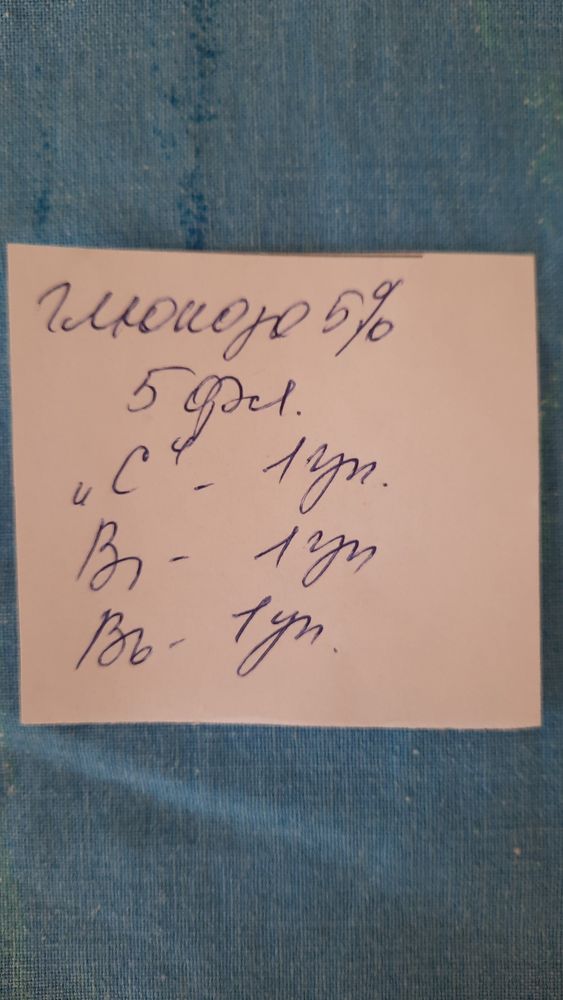 глюкоза 5%
5 фл.
„С“ - 1 уп.
B1 - 1 уп
B6 - 1 уп.